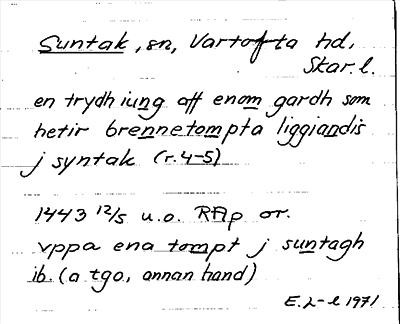 Suntak, sn, Vartofta hd,
Skar. l.
en trydh iung aff enom gardh som
hetir brennetompta liggiandis
j syntak (r. 4-5)
1443 12/5 u.o. RAp or.
vppa ena tompt j suntagh
ib. (a tgo, annan hand)
E. L-l 1971